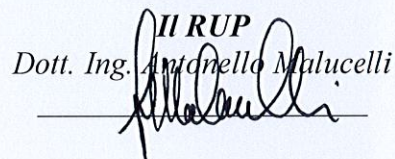 Il RUP
Dott. Ing. Antonello Malucelli